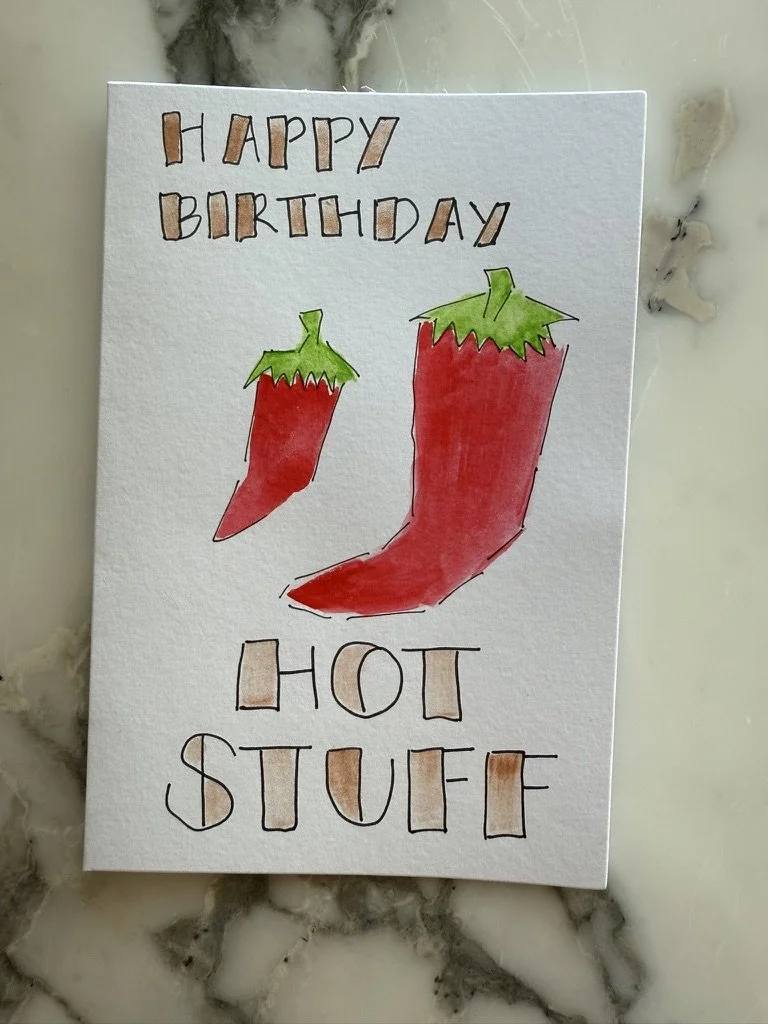 HAPPY
BIRTHDAY
HOT
STUFF